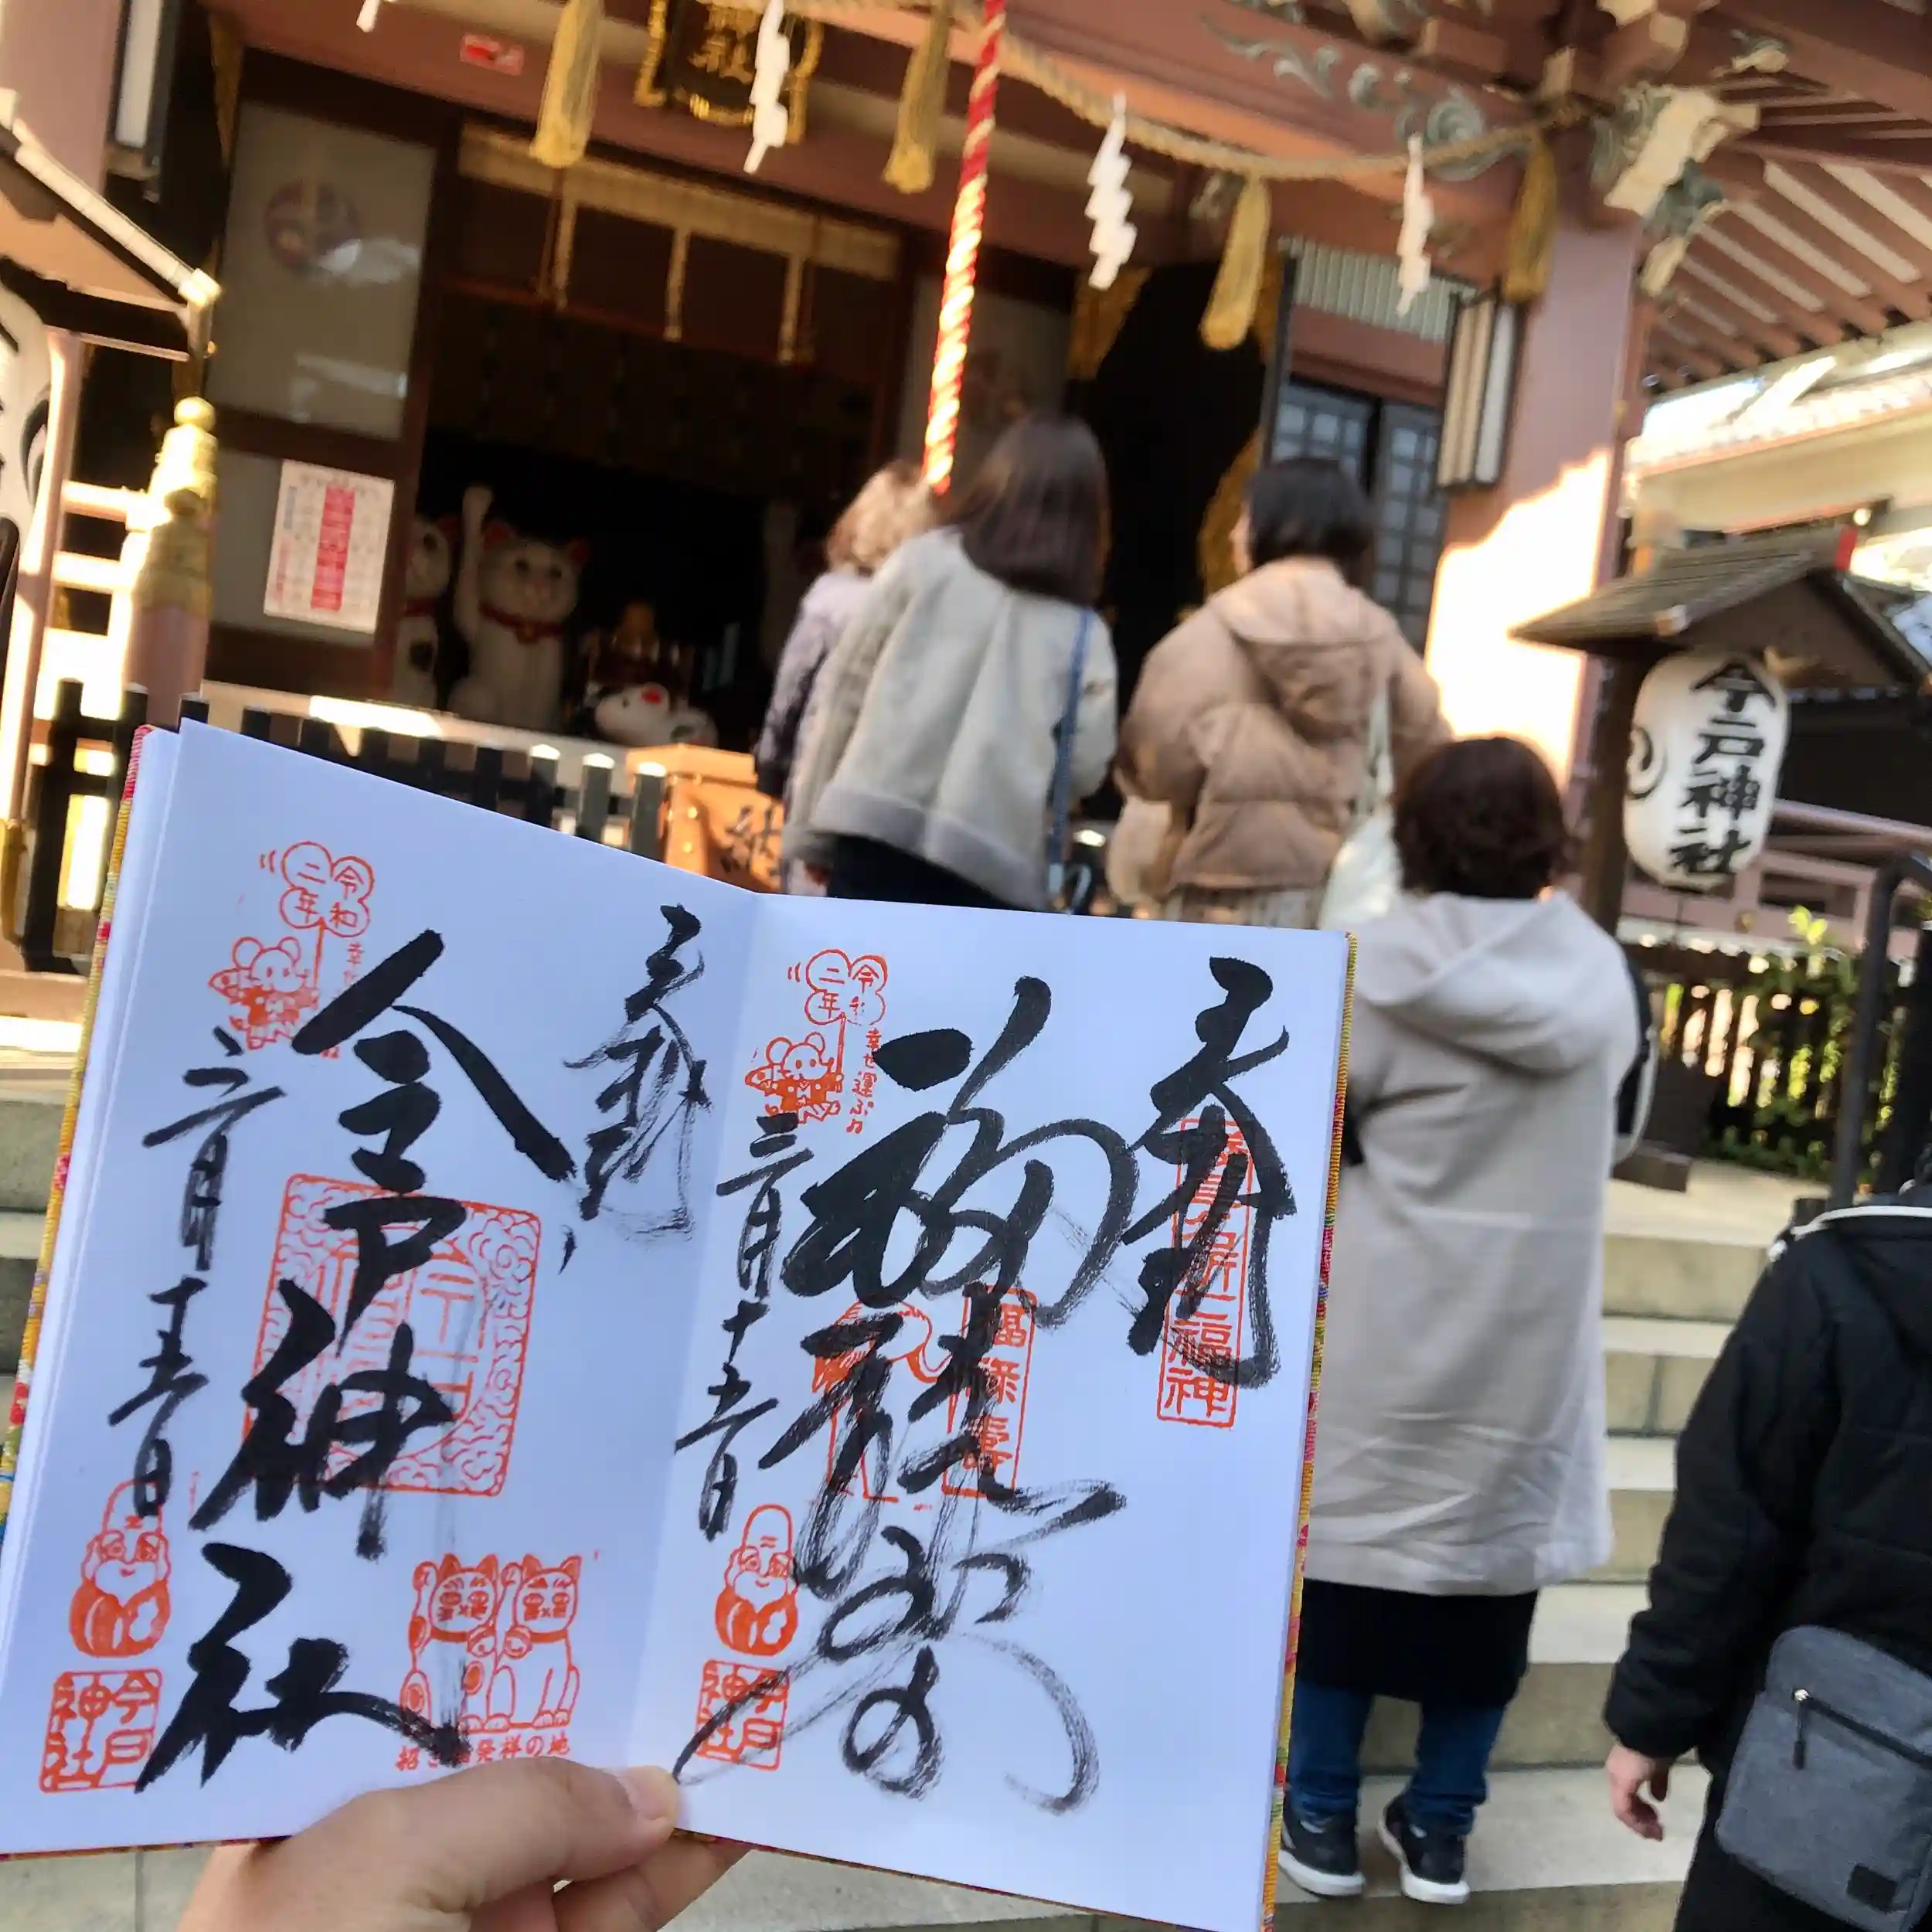 神社
今戸神社
納
奉拝
福禄寿
令和
二年
幸せ運ぶ♫
二月十五日
浅草七福神
福禄寿
今戸
神社
奉拝
今戸神社
令和
二年
幸せ
二月十五日
招き猫発祥の地
今戸
神社